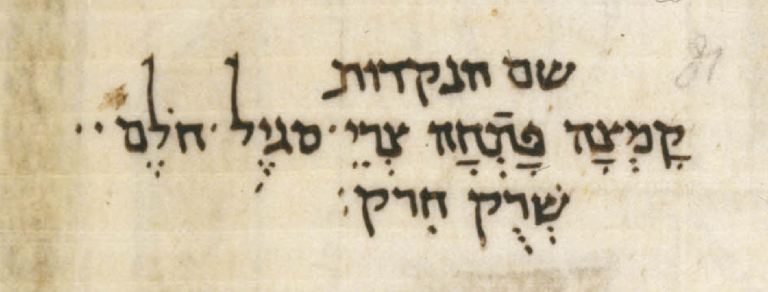 שם הנקדות
קָמְצָה פָּתְחָה צְרֵיֵ סגיֶל חֹלֶם
שְׁרֻק חִרק